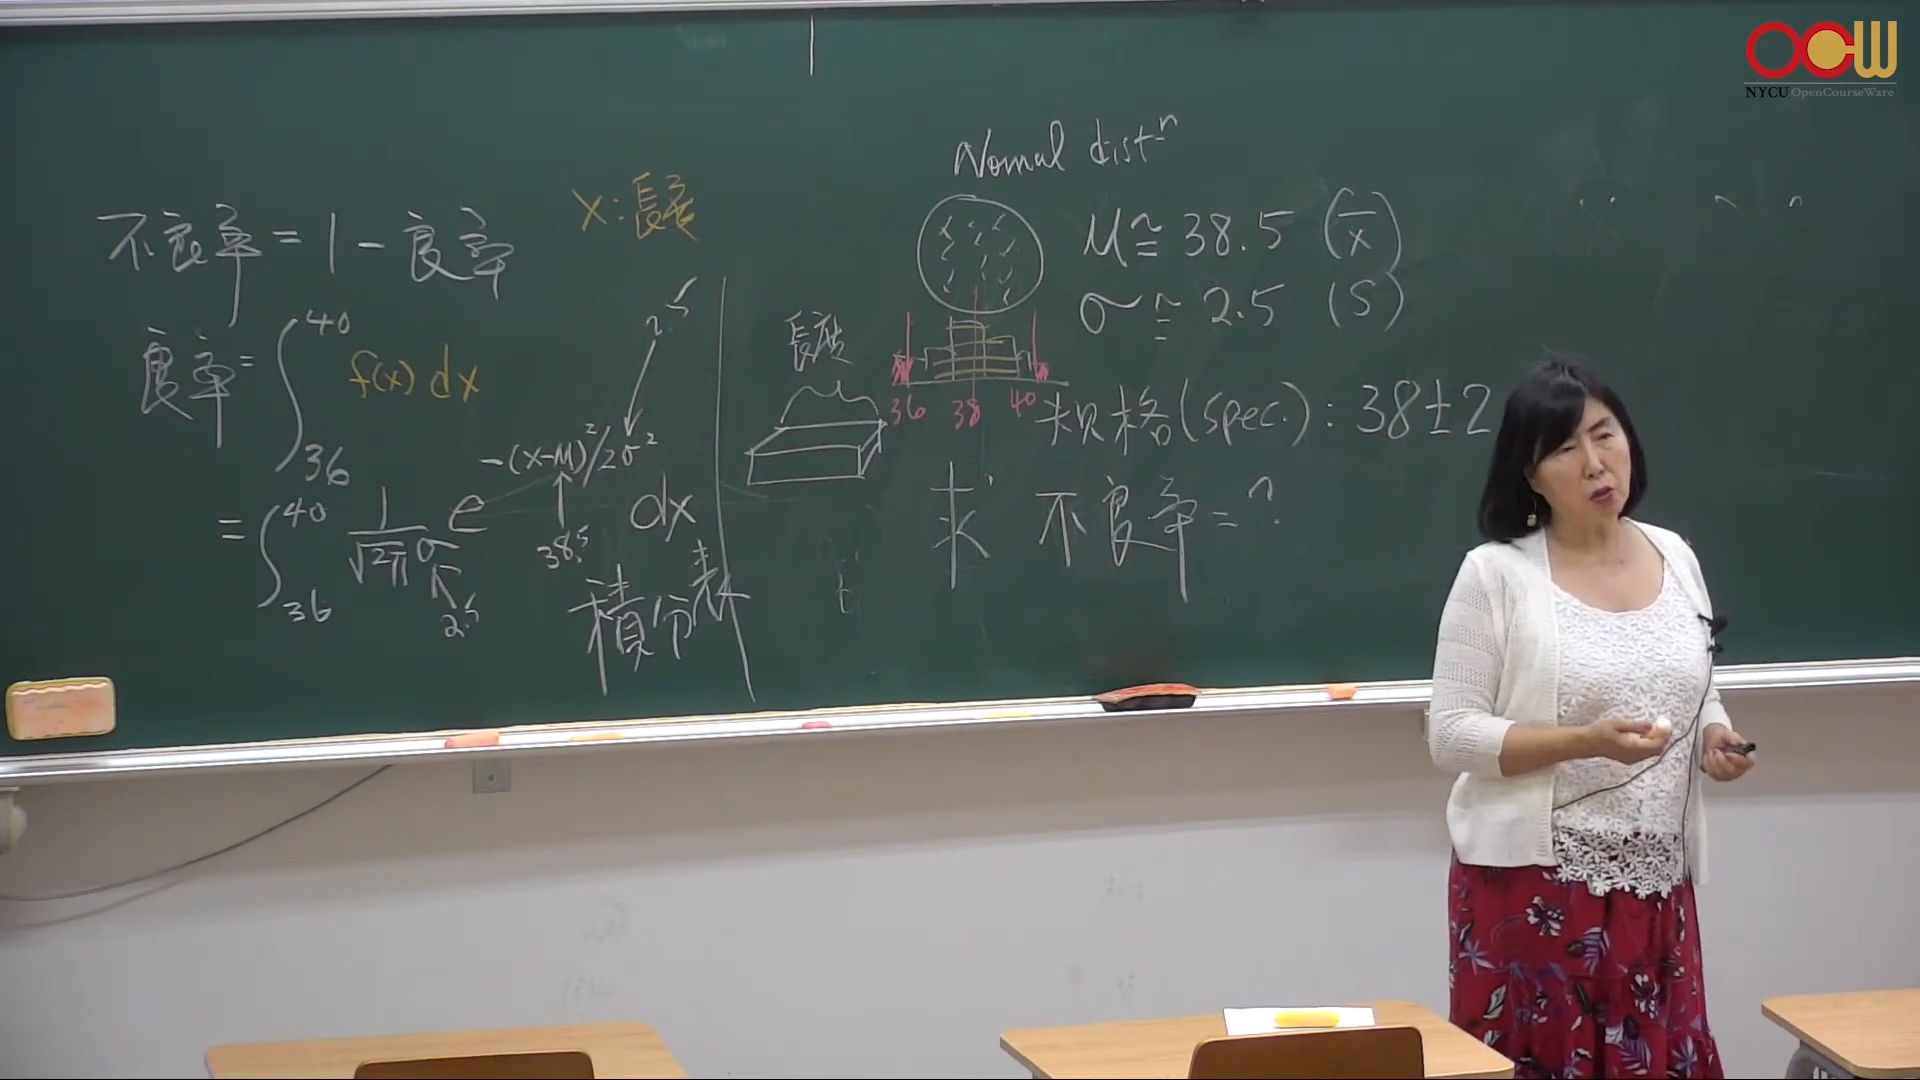 OCW
NYCU OpenCourseWare
不良率 = 1 - 良率
X: 長度
良率 = ∫₃₆⁴⁰ f(x) dx
= ∫₃₆⁴⁰ 1/√2π σ e -(x-μ)²/2σ² dx
2.5
38.5
2.5
積分表
Nomal distⁿ
μ ≅ 38.5 (x̄)
σ ≅ 2.5 (S)
長度
36 38 40
規格(spec.): 38±2
求 不良率 = ?